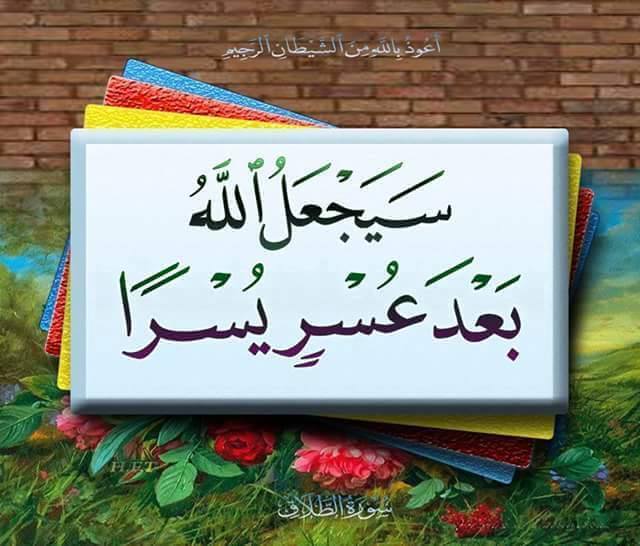 أَعُوذُ بِاللَّهِ مِنَ ٱلشَّيْطَانِ ٱلرَّجِيمِ
سَيَجْعَلُ ٱللَّهُ
بَعْدَ عُسْرٍ يُسْرًا
H.E.T
سُورَةُ الطَّلَاقِ